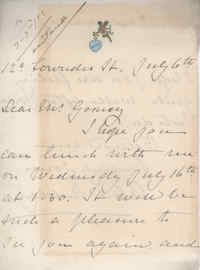 12 Lowndes St. July 6th
Dear Mrs
I hope you
can lunch with me
on Wednesday July 16th
at 1.30. It will be
such a pleasure to
see you again and